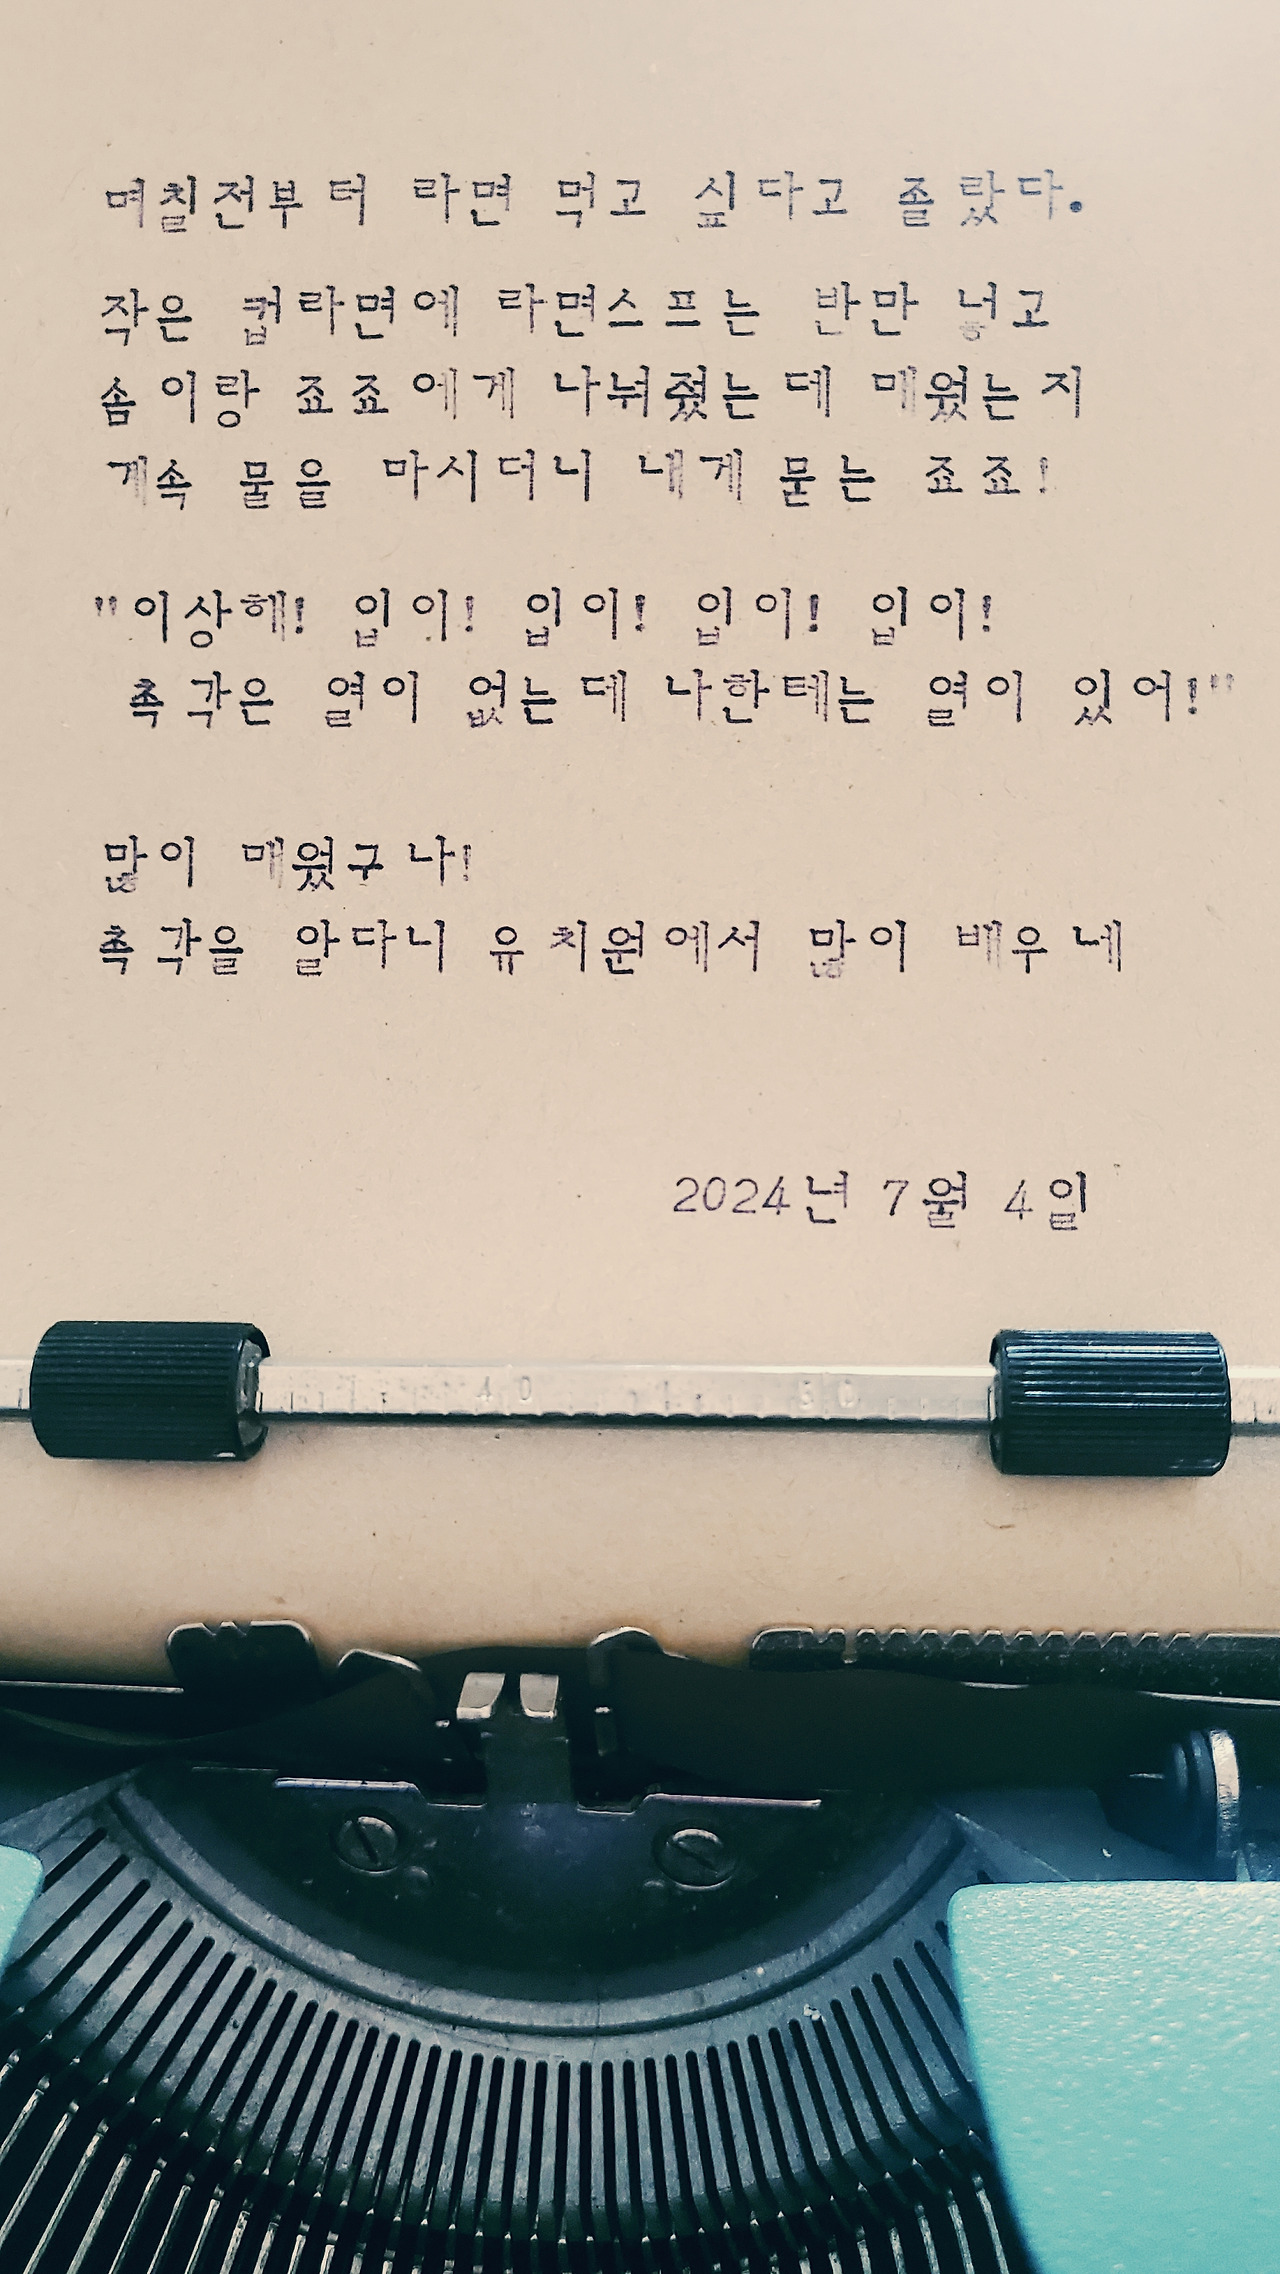 며칠전부터 라면 먹고 싶다고 졸랐다.
작은 컵라면에 라면스프는 반만 넣고
솜이랑 죠죠에게 나눠줬는데 매웠는지
계속 물을 마시더니 내게 묻는 죠죠!
"이상해! 입이! 입이! 입이! 입이!
촉각은 열이 없는데 나한테는 열이 있어!"
많이 매웠구나!
촉각을 알다니 유치원에서 많이 배우네
2024년 7월 4일
40 50